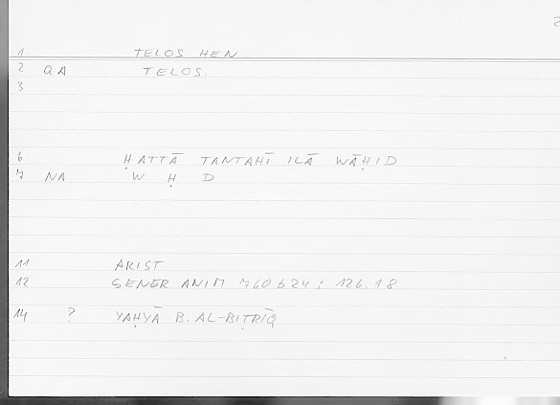 1 TELOS HEN
2 QA TELOS.
3
6 ḤATTĀ TANTAHĪ ILĀ WĀḤID
7 NA W Ḥ D
11 ARIST
12 GENER ANIM 760b24; 126.18
14 ? YAḤYĀ B. AL-BIṬRĪQ